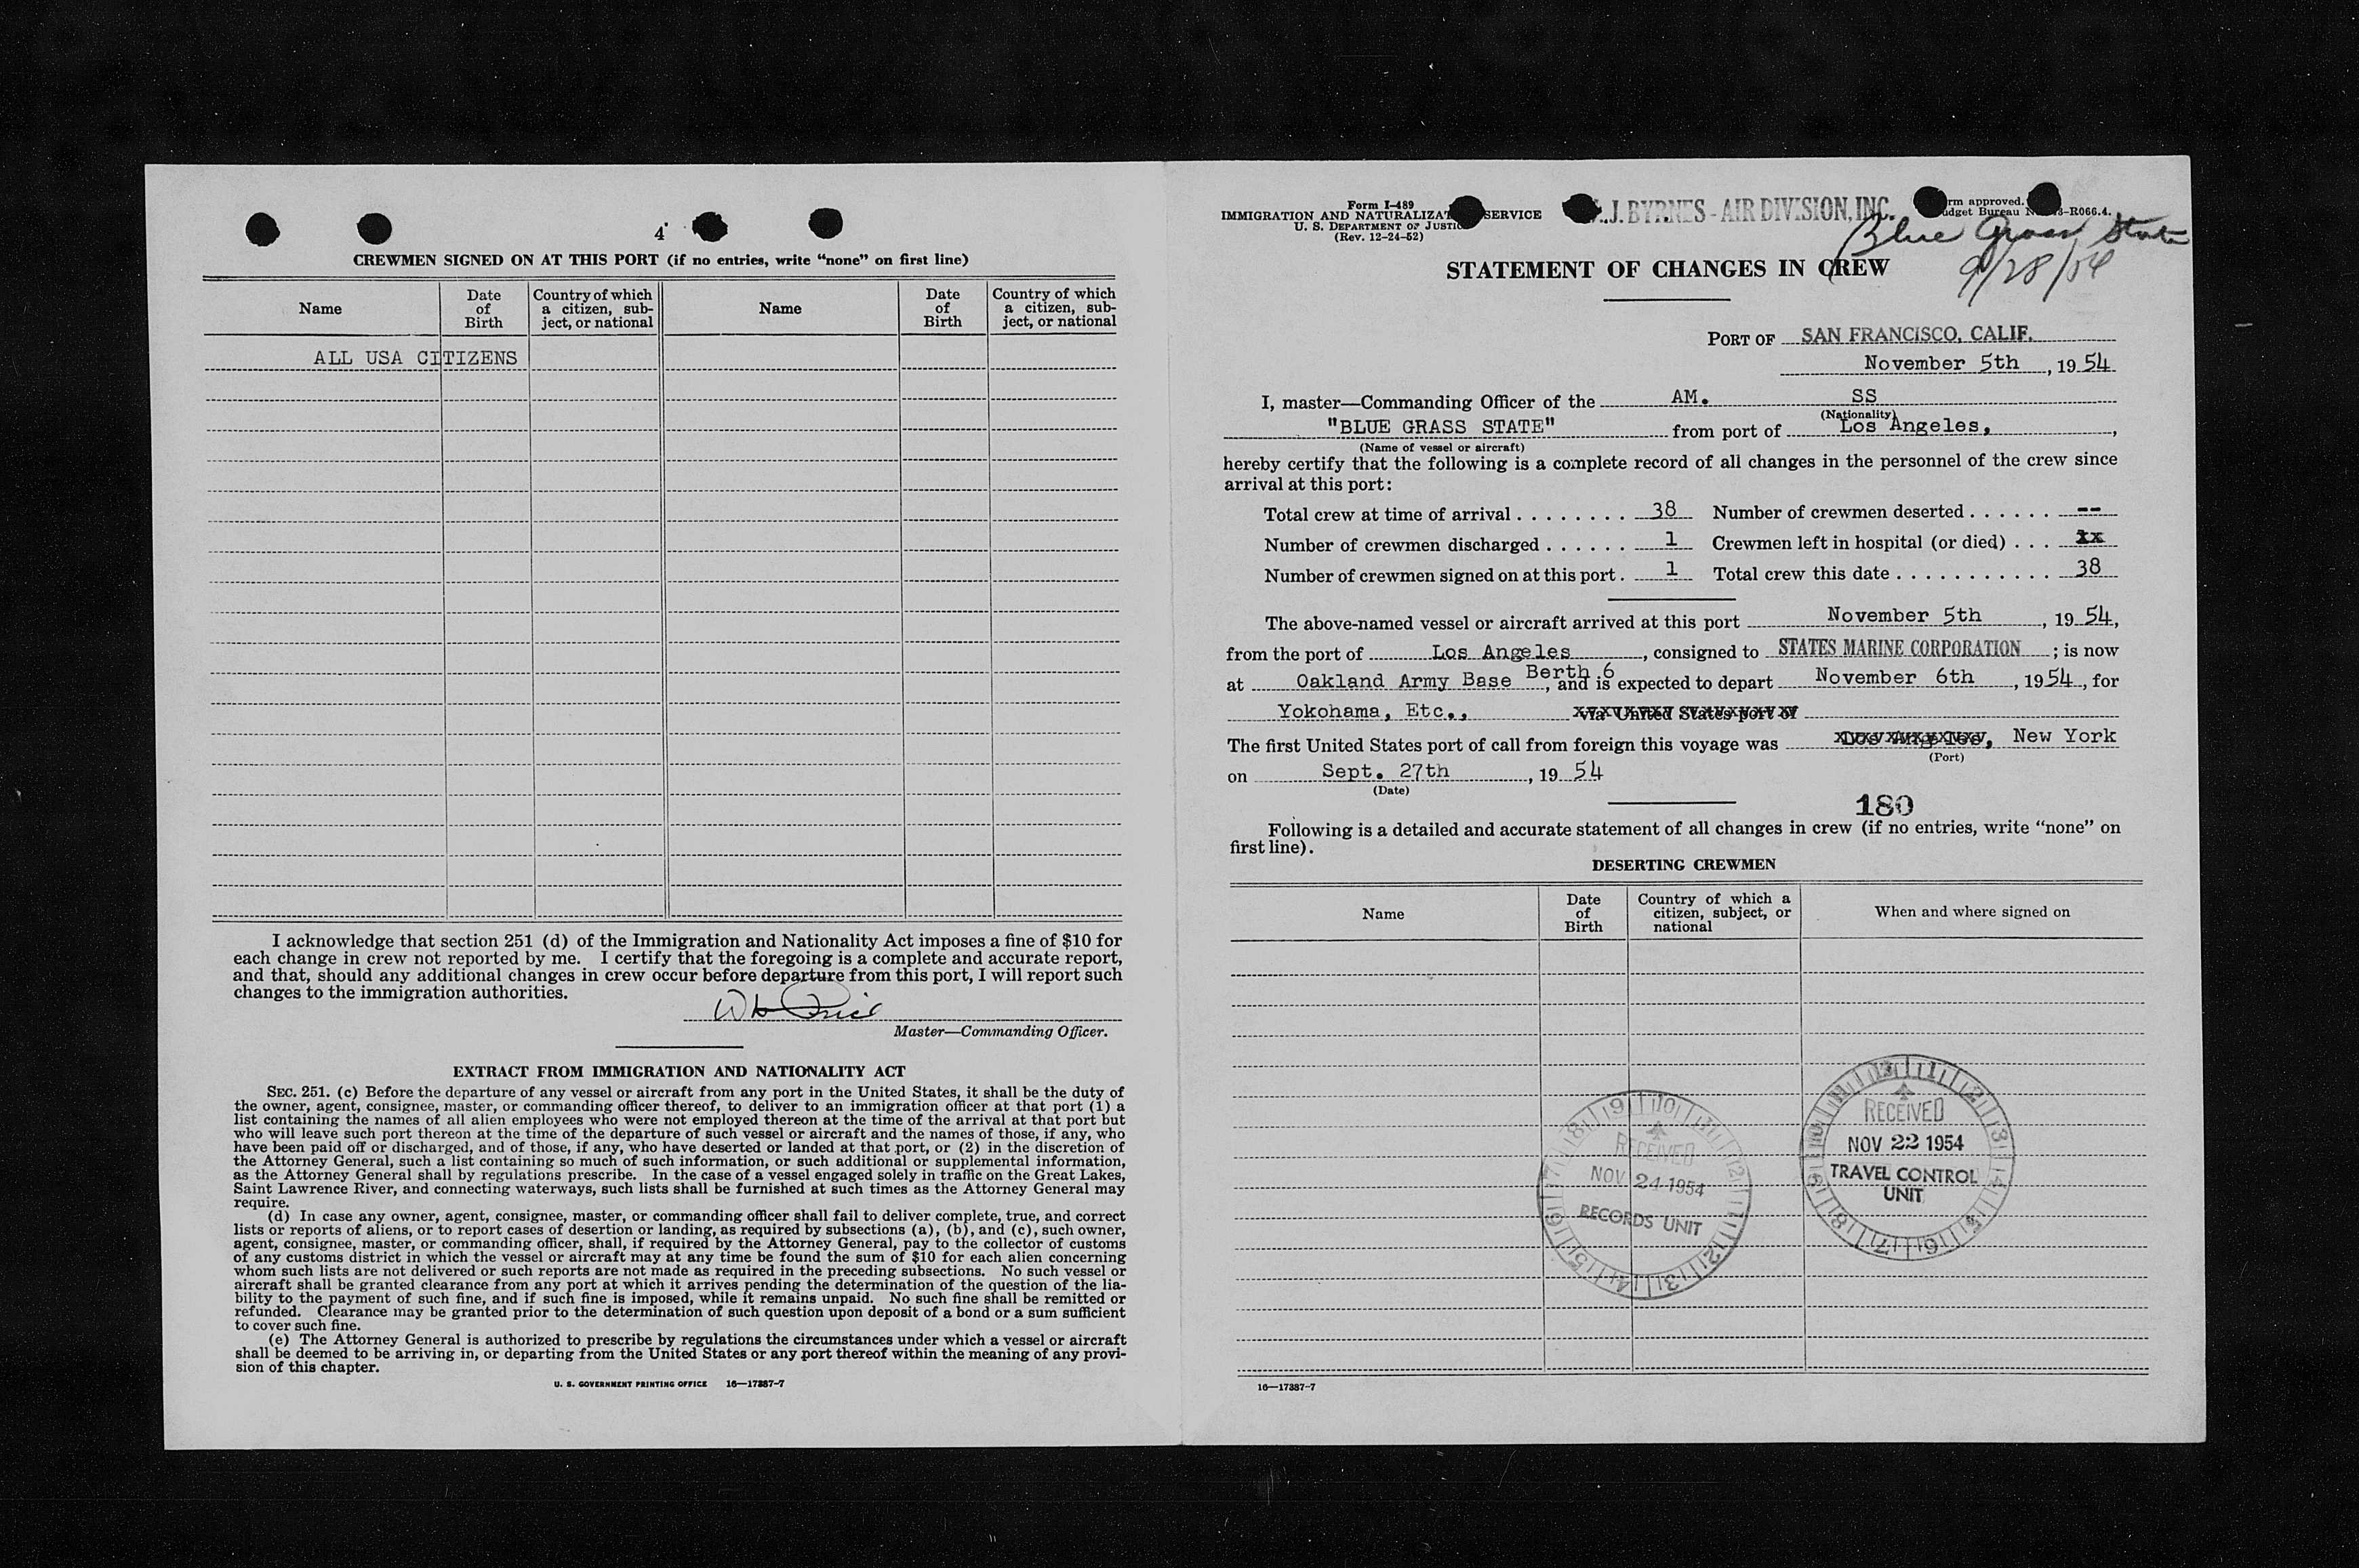 4
CREWMEN SIGNED ON AT THIS PORT (if no entries, write “none” on first line)
Name Date of Birth Country of which a citizen, sub- ject, or national Name Date of Birth Country of which a citizen, sub- ject, or national
ALL USA CITIZENS
I acknowledge that section 251 (d) of the Immigration and Nationality Act imposes a fine of $10 for
each change in crew not reported by me. I certify that the foregoing is a complete and accurate report,
and that, should any additional changes in crew occur before departure from this port, I will report such
changes to the immigration authorities.
Master—Commanding Officer.
EXTRACT FROM IMMIGRATION AND NATIONALITY ACT
SEC. 251. (c) Before the departure of any vessel or aircraft from any port in the United States, it shall be the duty of
the owner, agent, consignee, master, or commanding officer thereof, to deliver to an immigration officer at that port (1) a
list containing the names of all alien employees who were not employed thereon at the time of the arrival at that port but
who will leave such port thereon at the time of the departure of such vessel or aircraft and the names of those, if any, who
have been paid off or discharged, and of those, if any, who have deserted or landed at that port, or (2) in the discretion of
the Attorney General, such a list containing so much of such information, or such additional or supplemental information,
as the Attorney General shall by regulations prescribe. In the case of a vessel engaged solely in traffic on the Great Lakes,
Saint Lawrence River, and connecting waterways, such lists shall be furnished at such times as the Attorney General may
require.
(d) In case any owner, agent, consignee, master, or commanding officer shall fail to deliver complete, true, and correct
lists or reports of aliens, or to report cases of desertion or landing, as required by subsections (a), (b), and (c), such owner,
agent, consignee, master, or commanding officer, shall, if required by the Attorney General, pay to the collector of customs
of any customs district in which the vessel or aircraft may at any time be found the sum of $10 for each alien concerning
whom such lists are not delivered or such reports are not made as required in the preceding subsections. No such vessel or
aircraft shall be granted clearance from any port at which it arrives pending the determination of the question of the lia-
bility to the payment of such fine, and if such fine is imposed, while it remains unpaid. No such fine shall be remitted or
refunded. Clearance may be granted prior to the determination of such question upon deposit of a bond or a sum sufficient
to cover such fine.
(e) The Attorney General is authorized to prescribe by regulations the circumstances under which a vessel or aircraft
shall be deemed to be arriving in, or departing from the United States or any port thereof within the meaning of any provi-
sion of this chapter.
U. S. GOVERNMENT PRINTING OFFICE 16—17387-7
Form I-489
IMMIGRATION AND NATURALIZAT SERVICE
U. S. DEPARTMENT OF JUSTIC
(Rev. 12-24-52)
J. BYRNES - AIR DIVISION, INC.
rm approved.
udget Bureau N 3-R066.4.
Blue Grass State
9/28/54
STATEMENT OF CHANGES IN CREW
PORT OF SAN FRANCISCO, CALIF.
November 5th, 1954
I, master—Commanding Officer of the AM. SS
(Nationality)
"BLUE GRASS STATE" from port of Los Angeles,
(Name of vessel or aircraft)
hereby certify that the following is a complete record of all changes in the personnel of the crew since
arrival at this port:
Total crew at time of arrival 38 Number of crewmen deserted --
Number of crewmen discharged 1 Crewmen left in hospital (or died) xx
Number of crewmen signed on at this port 1 Total crew this date 38
The above-named vessel or aircraft arrived at this port November 5th, 1954,
from the port of Los Angeles, consigned to STATES MARINE CORPORATION; is now
at Oakland Army Base Berth 6, and is expected to depart November 6th, 1954, for
Yokohama, Etc., via United States port of
The first United States port of call from foreign this voyage was Los Angeles, New York
(Port)
on Sept. 27th, 1954
(Date)
180
Following is a detailed and accurate statement of all changes in crew (if no entries, write “none” on
first line).
DESERTING CREWMEN
Name Date of Birth Country of which a citizen, subject, or national When and where signed on
RECEIVED
NOV 24 1954
RECORDS UNIT
RECEIVED
NOV 22 1954
TRAVEL CONTROL
UNIT
16—17387-7